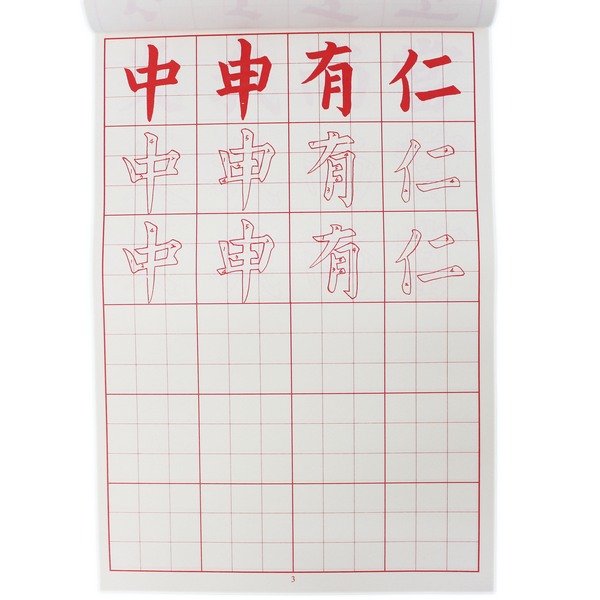 中 申 有 仁
中 申 有 仁
中 申 有 仁
3